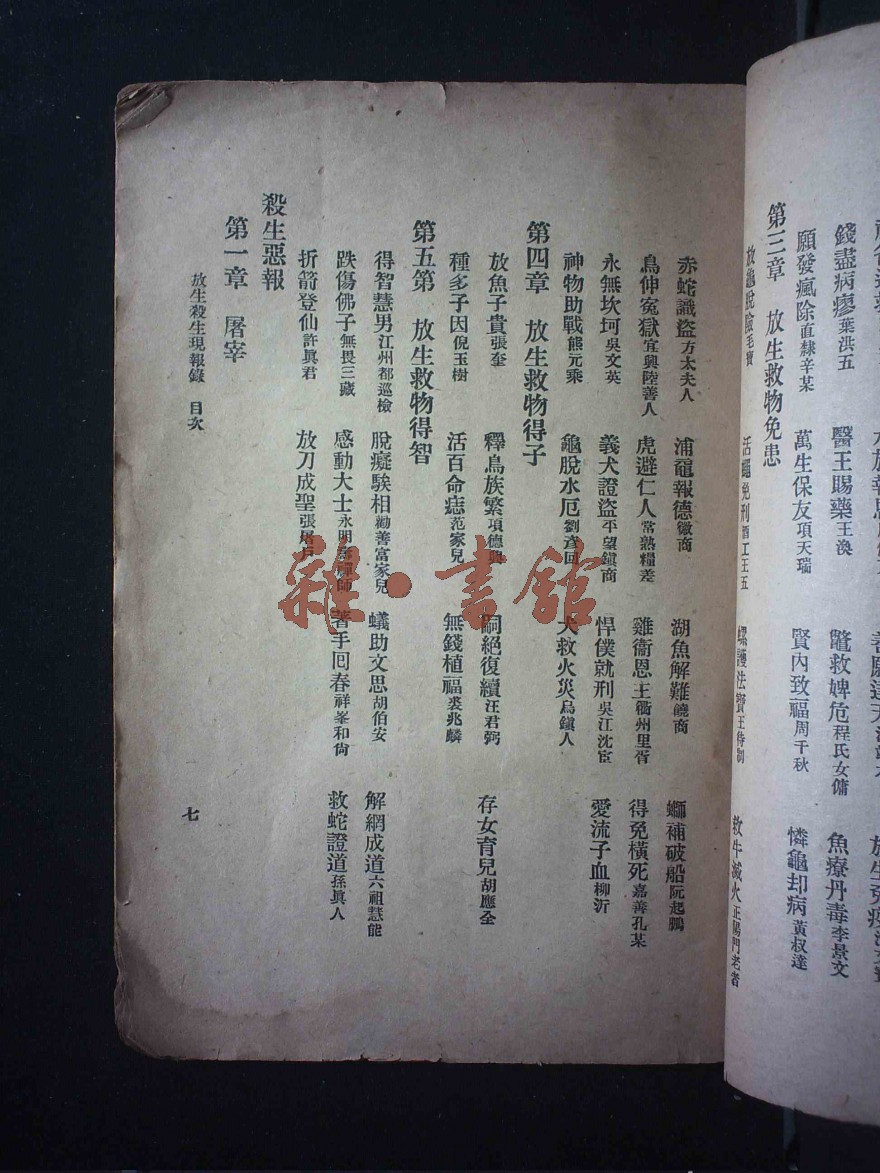 錢盡病瘳葉洪五　醫王賜藥王渙　鼈救婢危程氏女傭　魚療丹毒李景文
願發瘋除直隸辛某　萬生保友項天瑞　賢內致福周千秋　憐龜却病黃叔達
第三章　放生救物免患
放龜脫險毛寶　活蠅免刑酒工王五　螺護法寶王待制　救牛滅火正陽門老者
赤蛇識盜方太夫人　浦黿報德徽商　湖魚解難饒商　螄補破船阮起鵬
鳥伸寃獄宜興陸善人　虎避仁人常熟糧差　雞銜恩王衢州里胥　得免橫死嘉善孔某
永無坎坷吳文英　義犬證盜平望鎮商　悍僕就刑吳江沈宦　愛流子血柳沂
神物助戰熊元乘　龜脫水厄劉彥回　犬救火災烏鎮人
第四章　放生救物得子
放魚子貴張奎　釋鳥族繁項德興　嗣絕復續汪君弼　存女育兒胡應全
種多子因倪玉樹　活百命痣范家兒　無錢植福裘兆麟
第五第　放生救物得智
得智慧男江州都巡檢　脫癡騃相勸善富家兒　蟻助文思胡伯安　解網成道六祖慧能
跌傷佛子無畏三藏　感動大士永明壽禪師　著手回春祥峯和尙　救蛇證道孫眞人
折箭登仙許眞君　放刀成聖張屠戶
殺生惡報
第一章　屠宰
放生殺生現報錄　目次
七
雜·書館